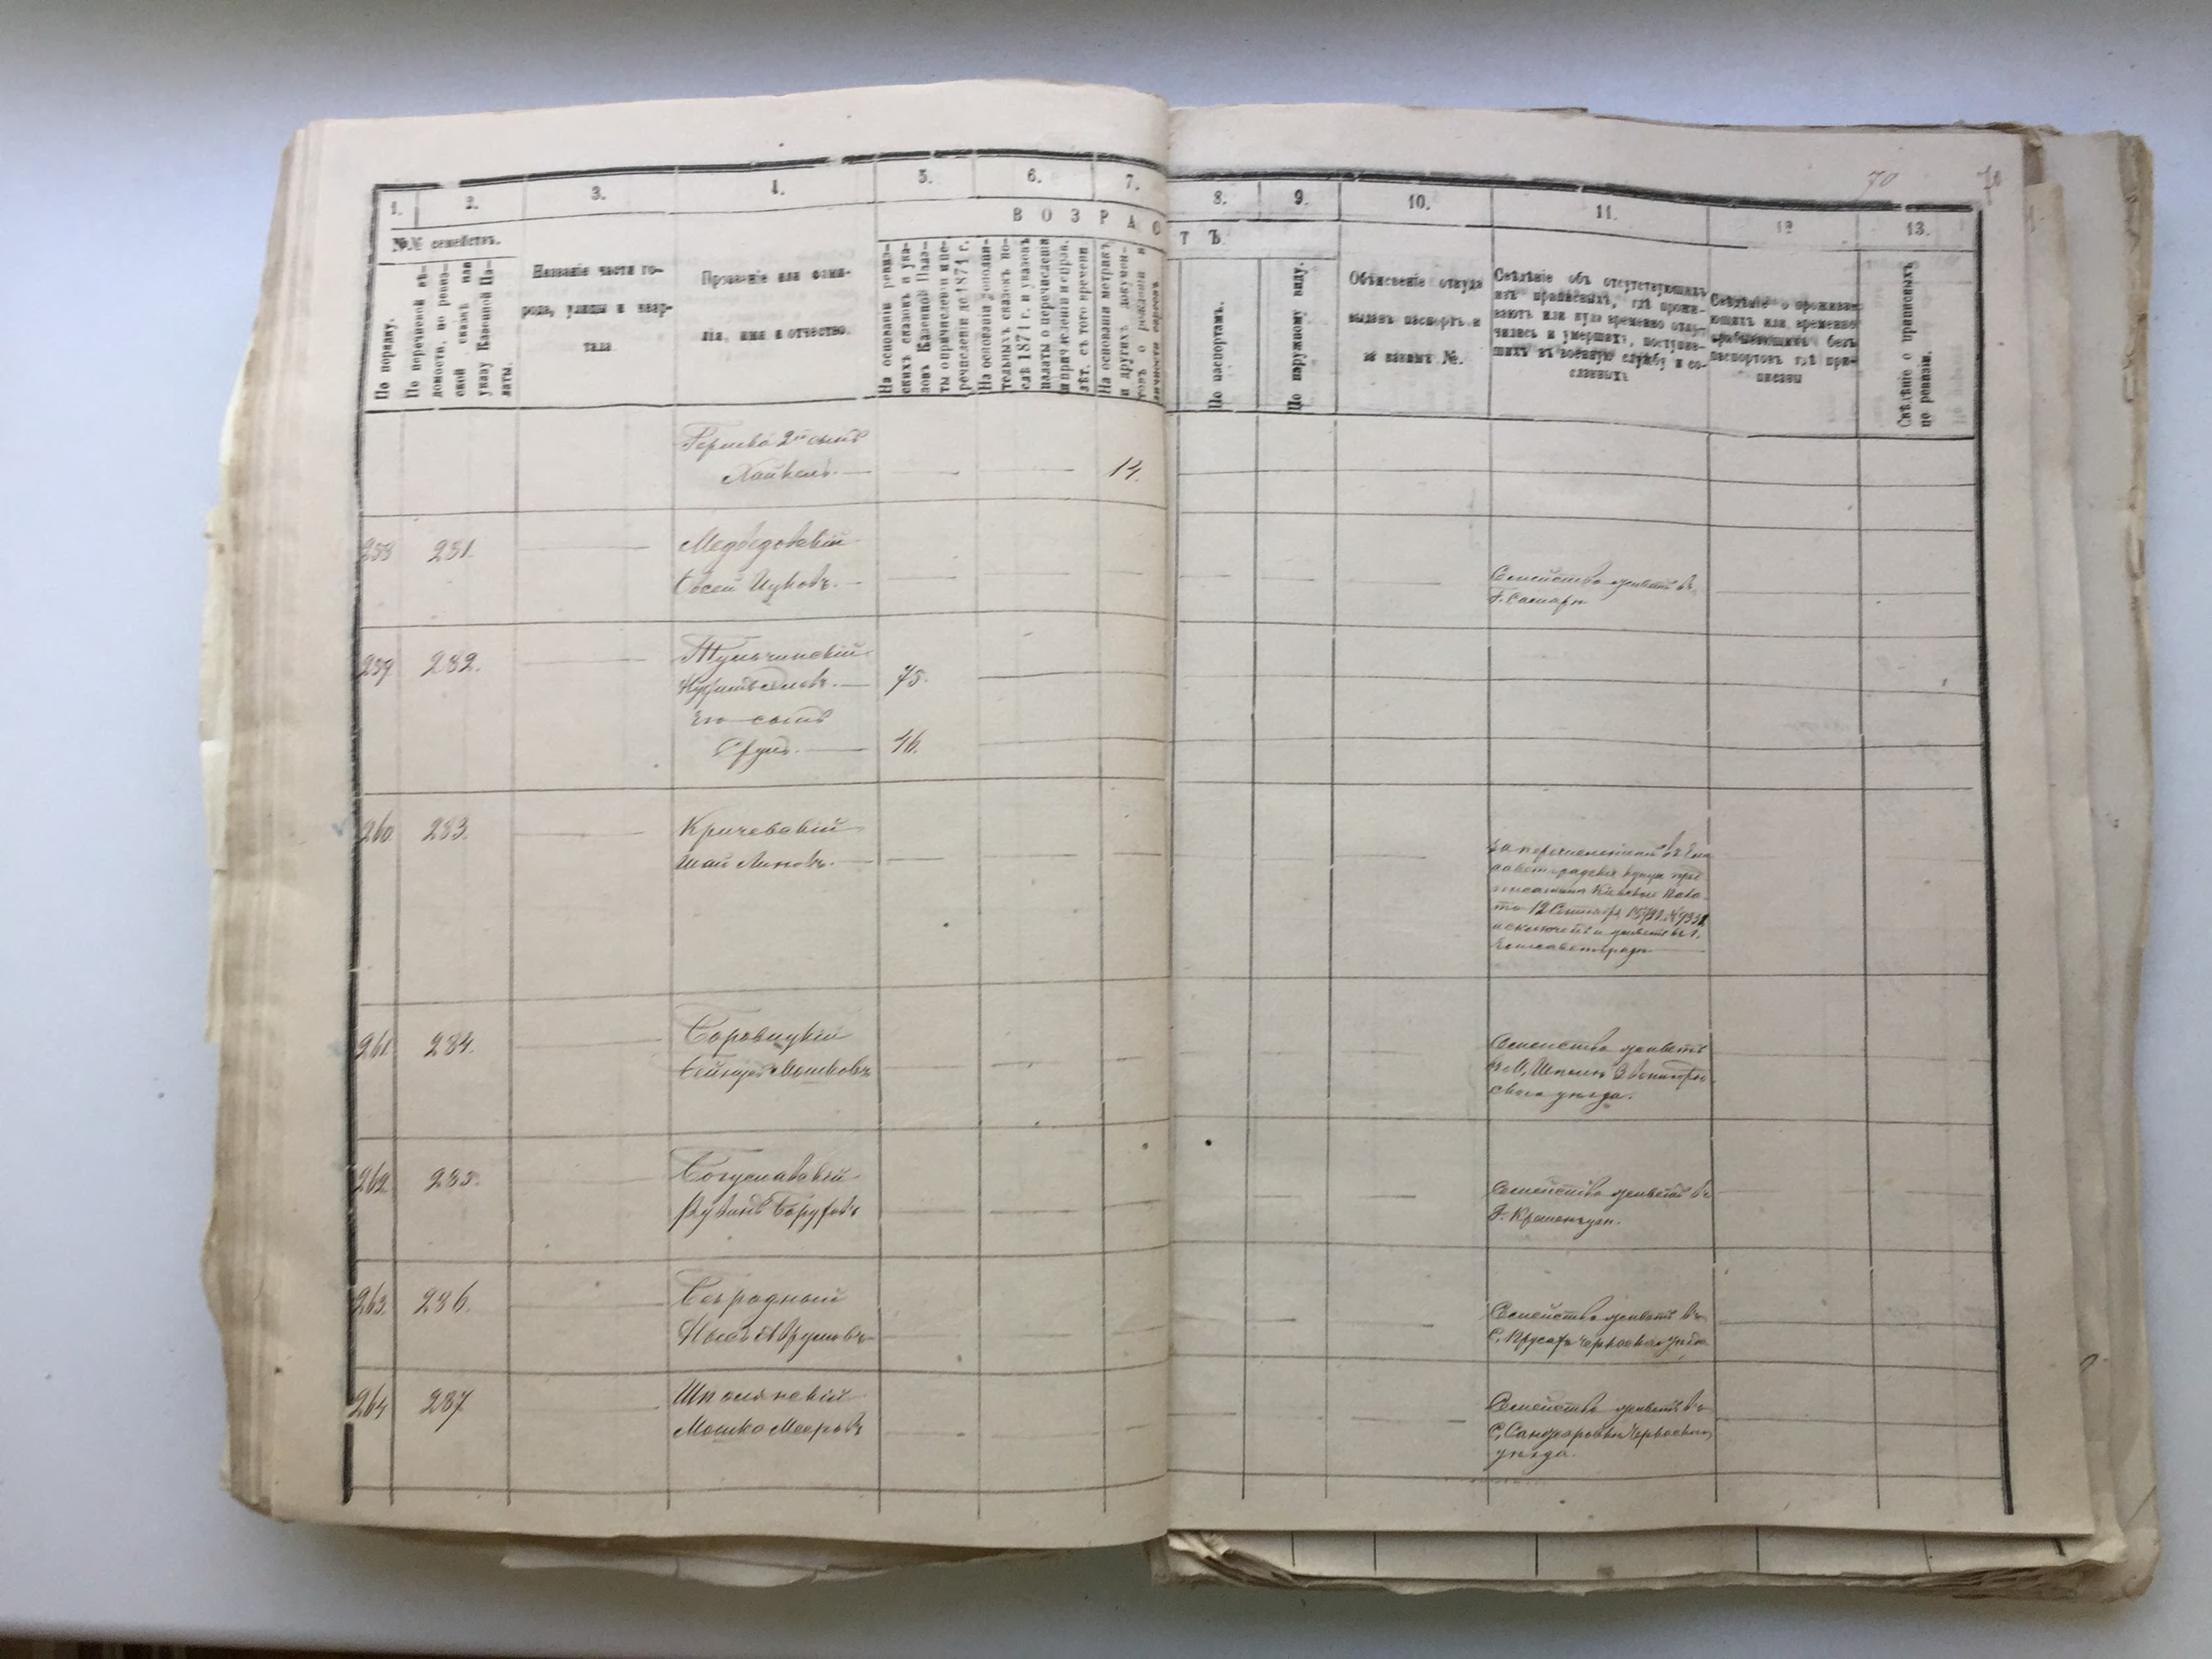 70
70
1.
2.
3.
4.
5.
6.
7.
8.
9.
10.
11.
12
13.
№№ семействъ.
ВОЗРАС
ТЪ
По порядку.
По перечневой вѣ-
домости, по ревиз-
ской сказкѣ или
указу Казенной Па-
латы.
Названіе части го-
рода, улицы и квар-
тала
Прозваніе или фами-
лія, имя и отчество.
На основаніи ревиз-
скихъ сказокъ и ука-
зовъ Казенной Пала-
ты о причисленіи и пе-
речисленіи до 1874 г.
На основаніи дополни-
тельныхъ сказокъ по-
слѣ 1874 г. и указовъ
палаты о перечисленіи
и причисленіи и справ.
лѣт. съ того времени
На основаніи метрикъ
и другихъ докумен-
товъ о рожденіи и
По паспортамъ.
По наружному виду.
Объясненіе откуда
выданъ паспортъ и
за какимъ №.
Свѣдѣніе объ отсутствующихъ
изъ приписныхъ, гдѣ прожи-
ваютъ или куда временно отлу-
чились и умершихъ, поступив-
шихъ въ военную службу и со-
сланныхъ
Свѣдѣніе о прожива-
ющихъ или временно
прибывшихъ безъ
паспортовъ гдѣ при-
писаны
Свѣдѣніе о приписныхъ
по ревизіи.
2й сынъ
Хайкель.
14.
258
281.
Медведовскій
Овсей Ицковъ.
Семейство живетъ въ
г. Самарѣ
259
282.
Тульчинскій
75.
Его сынъ
Сруль.
46.
260
283.
Кричевскій
Шай Линовъ.
исключенъ и живетъ въ г.
Елисаветградѣ
261
284.
Боровицкій
Мошковъ
Семейство живетъ
въ М. Шполѣ Звенигород-
скаго уѣзда.
262.
285.
Богуславскій
Рувинъ Боруховъ
Семейство живетъ въ
г. Кременчугѣ.
263.
286.
Безродный
Семейство живетъ въ
С. Прусахъ Черкаскаго уѣзда
264
287
Шполянскій
Мошко Мееровъ
Семейство живетъ въ
уѣзда.